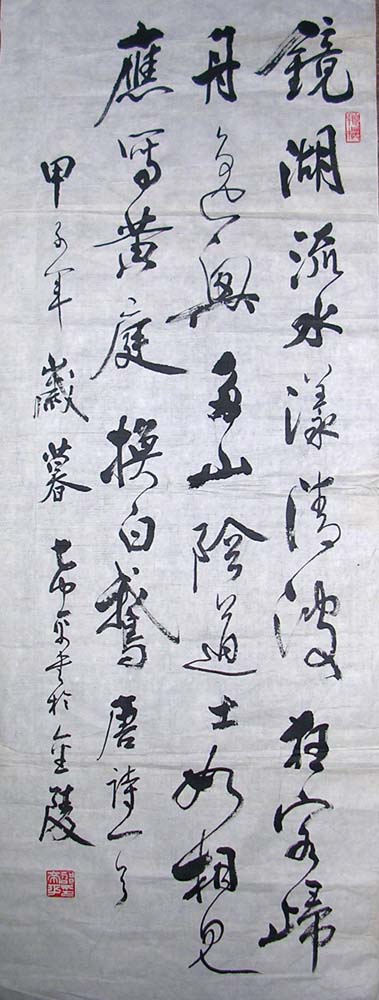 鏡湖流水漾清波狂客歸
舟逸興多山陰道士如相見
應寫黃庭換白鵝唐詩一首
甲子年歲暮書於金陵